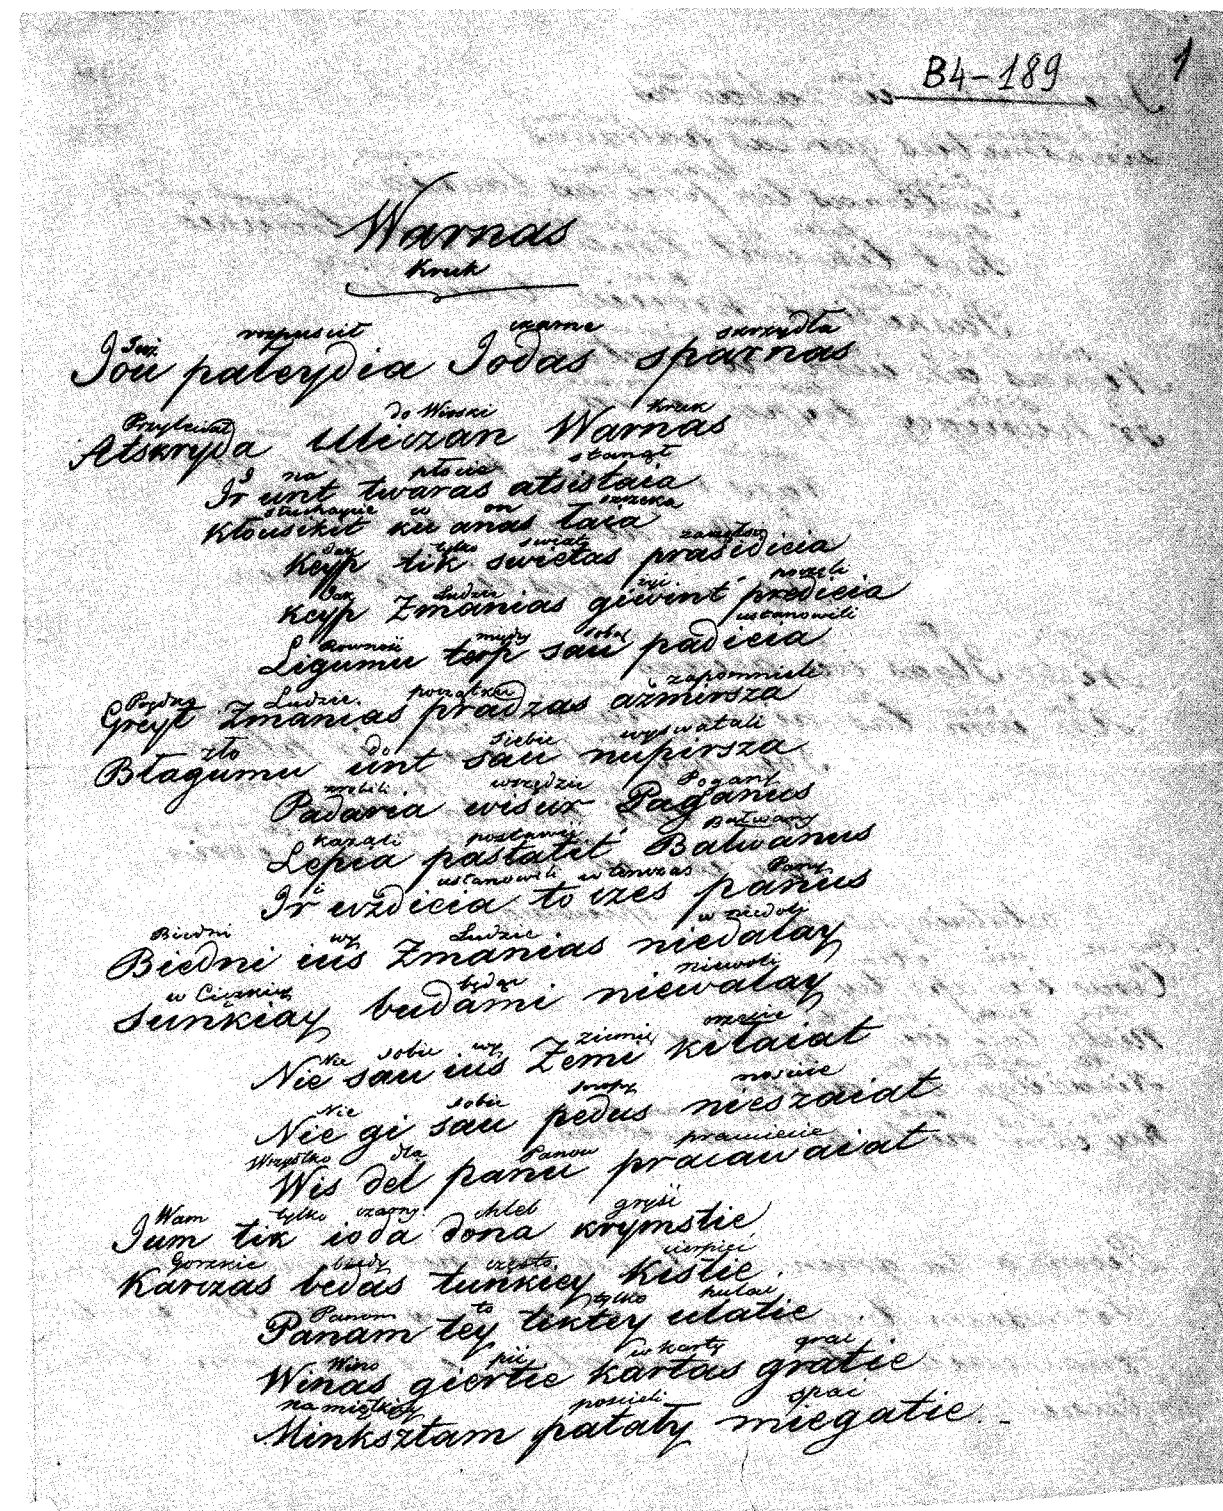 B4-189
1
Warnas
Kruk
Już rozpuścił czarne skrzydła
Jou pateydia Jodas sparnas
Przyleciał do Wioski kruk
Atskryda Uliczan Warnas
I na płocie stanął
Ir unt twaras atsistaia
słuchajcie co on szczeka
Kłousikit ku anas łaia
tylko świat
Keyp tik swietas prasidieia
Jak Ludzie żyć poczęli
Keyp Zmanias giwint predieia
Rowność między sobą ustanowili
Ligumu terp sau padieia
Prędko Ludzie początku zapomnieli
Greyt Zmanias pradzas azmirsza
zło do siebie wyswatali
Błagumu unt sau nupirsza
zrobili wszędzie Pogany
Padaria wisur Paganus
Kazali postawić Bałwany
Lepia pastatit Bałwanus
i ustanowili wtenczas Pany
Ir uzdieia to czes panus
Biedni wy Ludzie w niedoli
Biedni ius Zmanias niedalay
w Ciężkiej będąc niewoli
Sunkiay budami niewalay
Nie sobie wy ziemię orzecie
Nie sau ius Zemi kiłaiat
Nie sobie snopy nosicie
Nie gi sau pedus nieszaiat
Wszystko dla Panow pracuiecie
Wis del panu pracawaiat
Wam tylko czarny chleb gryść
Jum tik ioda dona krymstie
Gorzkie biedy często cierpieć
Karczas bedas tunkiey kistie
Panom to tylko hulać
Panam tey tiktey ulatie
Wino pić w karty grać
Winas giertie kartas gratie
na miękkiej pościeli spać
Minksztam pataly miegatie